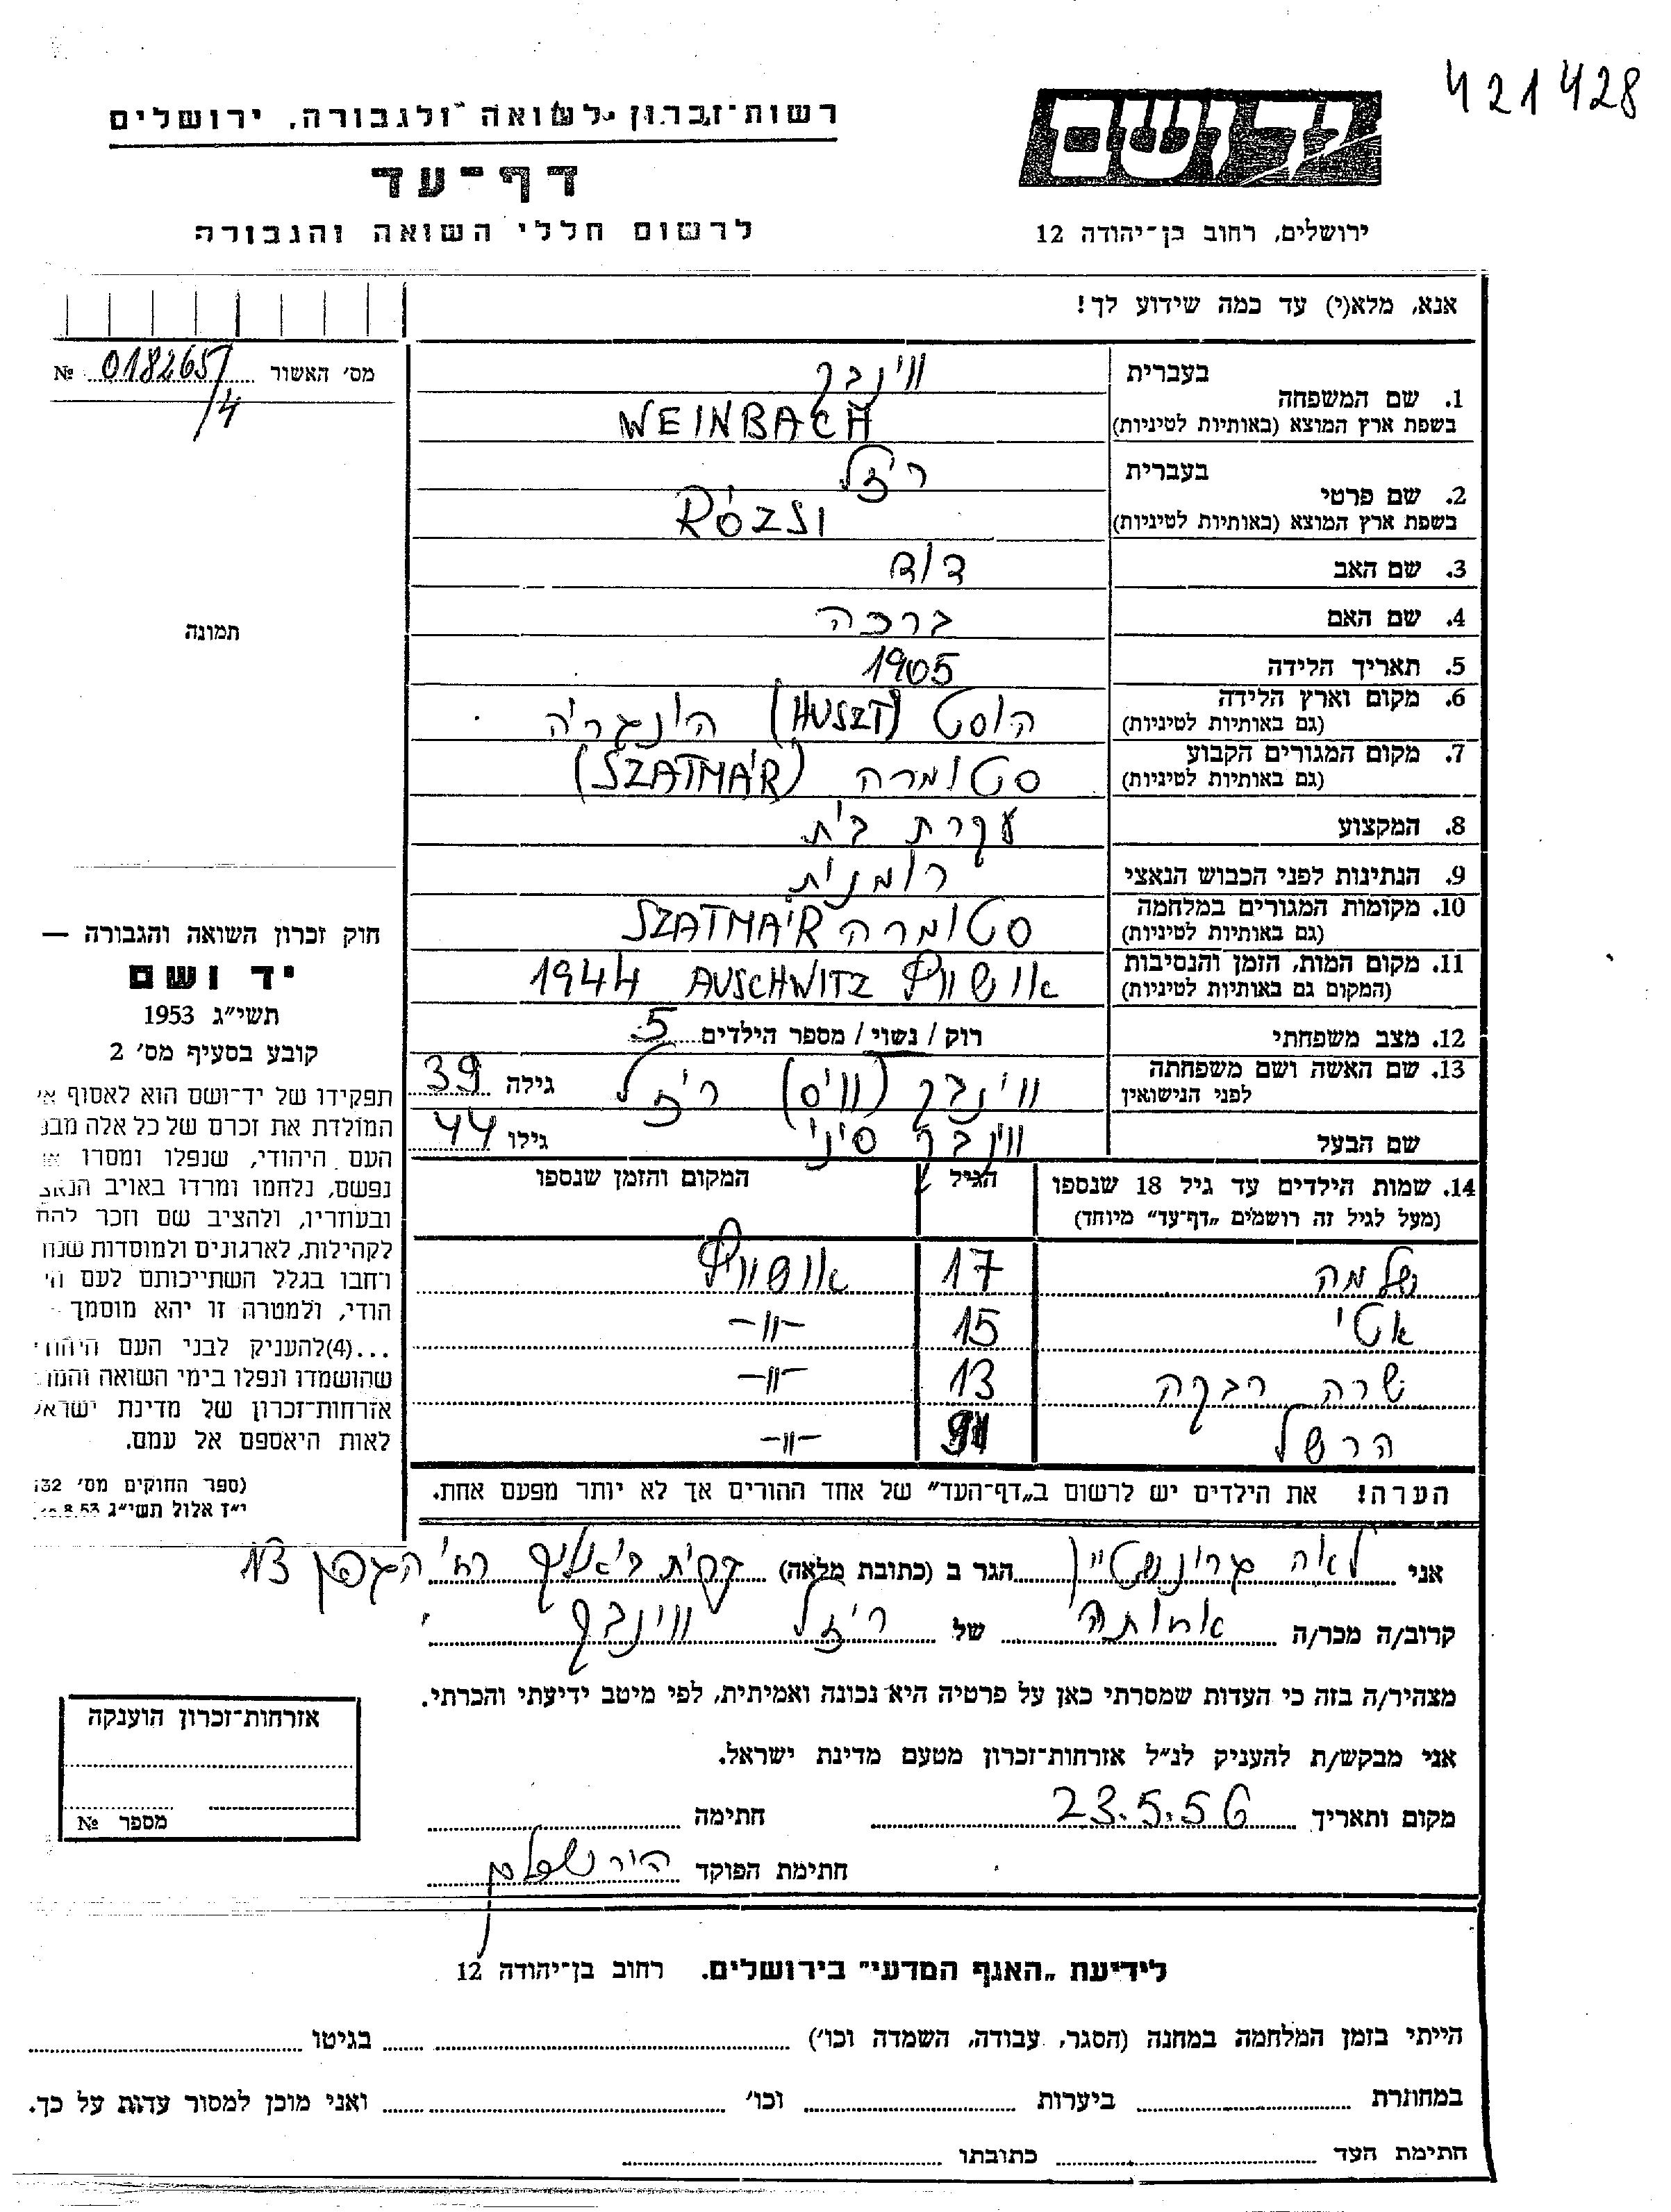 421428
רשות־זכרון לשואה ולגבורה, ירושלים
דף־עד
לרשום חללי השואה והגבורה
יד ושם
ירושלים, רחוב בן־יהודה 12
אנא, מלא(י) עד כמה שידוע לך!
מס׳ האשור № 0182651/4
תמונה
1. שם המשפחה
בעברית ווינבך
בשפת ארץ המוצא (באותיות לטיניות) WEINBACH
2. שם פרטי
בעברית ריזל
בשפת ארץ המוצא (באותיות לטיניות) RÓZSI
3. שם האב דוד
4. שם האם ברכה
5. תאריך הלידה 1905
6. מקום וארץ הלידה (גם באותיות לטיניות) הוסט (HUSZT) הונגריה
7. מקום המגורים הקבוע (גם באותיות לטיניות) סטומרה (SZATMÁR)
8. המקצוע עקרת בית
9. הנתינות לפני הכבוש הנאצי רומנית
10. מקומות המגורים במלחמה (גם באותיות לטיניות) סטומרה SZATMÁR
11. מקום המות, הזמן והנסיבות (המקום גם באותיות לטיניות) אושוויץ AUSCHWITZ 1944
12. מצב משפחתי רוק / נשוי / מספר הילדים 5
13. שם האשה ושם משפחתה לפני הנישואין ווינבך (ווייס) ריזל גילה 39
שם הבעל ווינבך סיני גילו 44
14. שמות הילדים עד גיל 18 שנספו הגיל המקום והזמן שנספו
(מעל לגיל זה רושמים „דף־עד” מיוחד)
שלמה 17 אושוויץ
אטי 15 -״-
שרה רבקה 13 -״-
הרשל -״-
הערה! את הילדים יש לרשום ב„דף־העד” של אחד ההורים אך לא יותר מפעם אחת.
חוק זכרון השואה והגבורה —
יד ושם
תשי״ג 1953
קובע בסעיף מס׳ 2
תפקידו של יד־ושם הוא לאסוף א
המולדת את זכרם של כל אלה מבנ
העם היהודי, שנפלו ומסרו א
נפשם, נלחמו ומרדו באויב הנאצ
ובעוזריו, ולהציב שם וזכר להם
לקהילות, לארגונים ולמוסדות שנח
רחבו בגלל השתייכותם לעם הי
הודי, ולמטרה זו יהא מוסמך -
...(4)להעניק לבני העם היהוד
שהושמדו ונפלו בימי השואה והמר
אזרחות־זכרון של מדינת ישראל
לאות היאספם אל עמם.
(ספר החוקים מס׳ 132
י״ז אלול תשי״ג 8.53
אני לאה גרינשטיין הגר ב (כתובת מלאה) קרית ביאליק רח׳ הגפן 13
קרוב/ה מכר/ה אחותה של ריזל ווינבך
מצהיר/ה בזה כי העדות שמסרתי כאן על פרטיה היא נכונה ואמיתית, לפי מיטב ידיעתי והכרתי.
אני מבקש/ת להעניק לנ״ל אזרחות־זכרון מטעם מדינת ישראל.
מקום ותאריך 23.5.56 חתימה
חתימת הפוקד
אזרחות־זכרון הוענקה
מספר №
לידיעת „האגף המדעי” בירושלים. רחוב בן־יהודה 12
הייתי בזמן המלחמה במחנה (הסגר, עבודה, השמדה וכו׳) בגיטו
במחתרת ביערות וכו׳ ואני מוכן למסור עדות על כך.
חתימת העד כתובתו